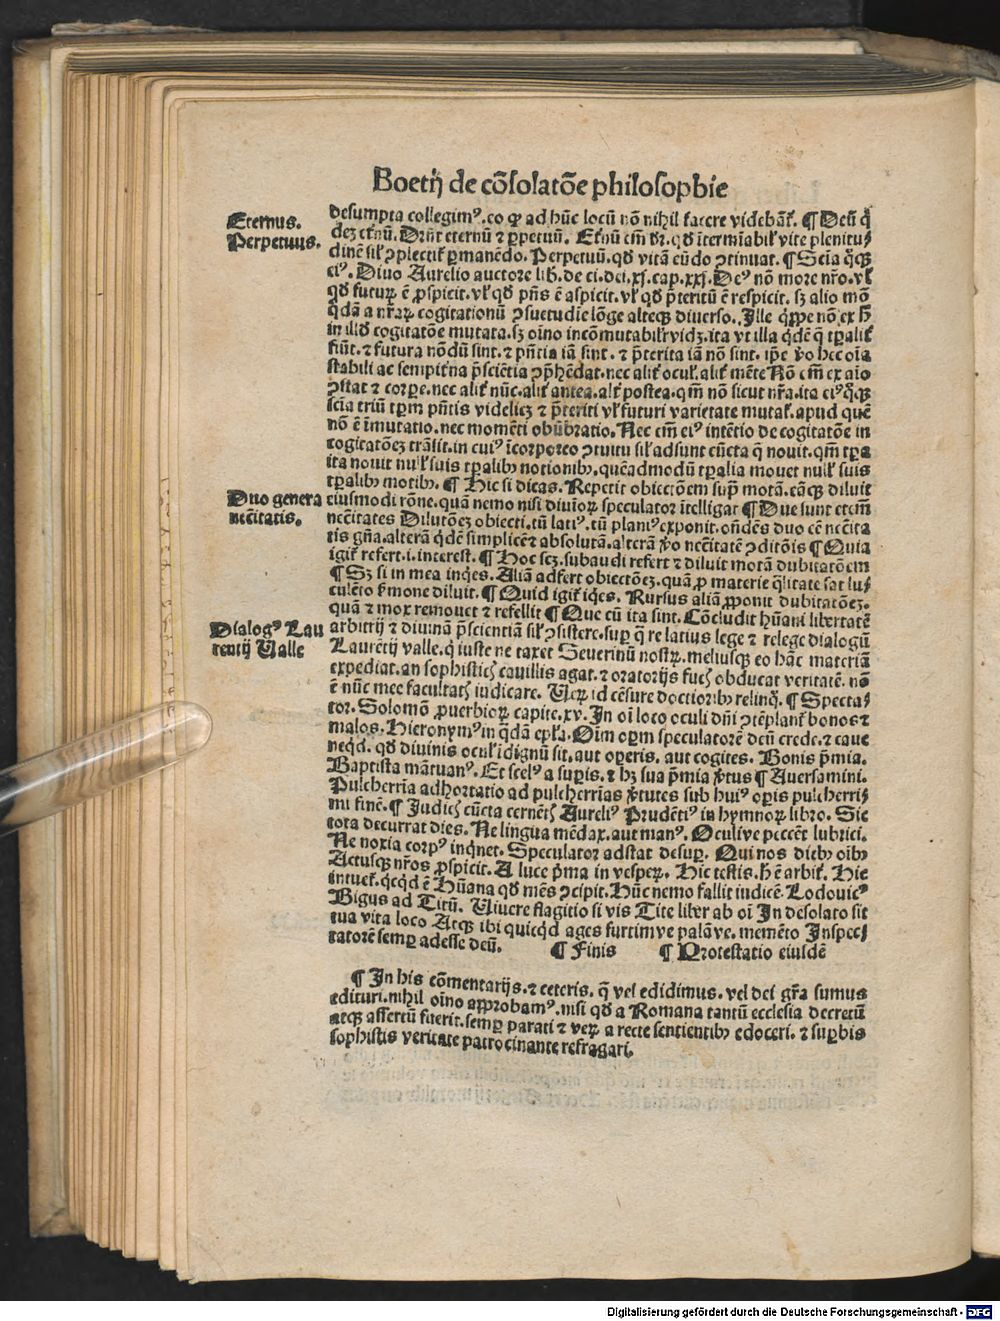 Boetij de cõsolatõe philosophie
Eternus.
Perpetuus.
desumpta collegimꝰ. eo ꝙ ad hũc locũ nõ nihil facere videbãt᷑. ¶ Deũ q̃
dinẽ sil᷑ ꝯplectit᷑ ꝑmanẽdo. Perpetuũ. qð vitã eũdo ꝯtinuat. ¶ Sciã q̃cꝫ
eiꝰ. Diuo Aurelio auctore lib. de ci. dei. xj. cap. xxj. Deꝰ nõ more nr̃o. vl᷑
qð futurꝝ ẽ ꝓspicit. vl᷑ qð p̃ñs ẽ aspicit. vl᷑ qð p̃teritũ ẽ respicit. sꝫ alio mõ
q̃dã a nr̃aꝝ cogitationũ ꝯsuetudĩe lõge alteqꝫ diuerso. Ille q̃ppe nõ ex h̃
in illð cogitatõe mutata. sꝫ oĩno incõmutabilr̃ videt. ita vt illa q̃dẽ q̃ tꝑalit᷑
fiũt. ⁊ futura nõdũ sint. ⁊ p̃ñtia iã sint. ⁊ p̃terita iã nõ sint. ip̃e ꝟo hec oĩa
stabili ac sempit̃na p̃sciẽtia ꝯp̃hẽdat. nec alit᷑ ocul᷑. alit᷑ mẽte Nõ em̃ ex aĩo
ꝯstat ⁊ corꝑe. nec alit᷑ nũc. alit᷑ antea. alit᷑ postea. qm̃ nõ sicut nr̃a. ita eiꝰ q̃cꝫ
sciã triũ tꝑm p̃ñtis videlicꝫ ⁊ p̃teriti vl᷑ futuri varietate mutat᷑. apud quẽ
nõ ẽ ĩmutatio. nec momẽti obũbratio. Nec em̃ eiꝰ intẽtio de cogitatõe in
cogitatõeꝫ trãsit. in cuiꝰ ĩcorporeo ꝯtuitu sil᷑ adsunt cũcta q̃ nouit. qm̃ tꝑa
ita nouit null᷑ suis tꝑalibꝫ notionibꝫ. quẽadmodũ tꝑalia mouet null᷑ suis
tꝑalibꝫ motibꝫ. ¶ Hic si dicas. Repetit obiectõem sup̃ motã. eãqꝫ diluit
Duo genera
necĩtatis.
eiusmodi rõne. quã nemo nisi diuĩoꝝ speculator ĩtelligat ¶ Due sunt etem̃
necĩtates Dilutõeꝫ obiecti. tũ latiꝰ. tũ planiꝰ exponit. oñdẽs duo eẽ necĩta
tis gña. alterã q̃dẽ simplicẽ ⁊ absolutã. alterã ꝟo necĩtatẽ ꝯditõis ¶ Quia
igit᷑ refert. i. interest. ¶ Hoc scꝫ. subaudi refert ⁊ diluit motã dubitatõem
¶ Sꝫ si in mea inq̃es. Aliã adfert obiectõeꝫ. quã ꝓ materie q̃litate sat lu⸗
culẽto ẜmone diluit. ¶ Quid igit᷑ iq̃es. Rursus aliã ꝓponit dubitatõeꝫ.
quã ⁊ mox remouet ⁊ refellit ¶ Que cũ ita sint. Cõcludit hũani libertatẽ
Dialogꝰ Lau
rentij Valle
arbitrij ⁊ diuinã p̃scientiã sil᷑ ꝯsistere. suꝑ q̃ re latius lege ⁊ relege dialogũ
Laurẽtij valle. q̃ iuste ne taxet Seuerinũ nostꝝ. meliusqꝫ eo hãc materiã
expediat. an sophisticꝭ cauillis agat. ⁊ oratorijs fucꝭ obducat veritatẽ. nõ
ẽ nũc mee facultatꝭ iudicare. Veꝝ id cẽsure doctioribꝫ relinq̃. ¶ Specta⸗
tor. Solomõ ꝓuerbioꝝ capite. xv. In oĩ loco oculi dñi ꝯtẽplant᷑ bonos ⁊
malos. Hieronymꝰ in q̃dã epl̃a. Oĩm opem̃ speculatorẽ deũ crede. ⁊ caue
neqð. qð diuinis ocul᷑ ĩdignũ sit. aut operis. aut cogites. Bonis p̃mia.
Baptista mãtuanꝰ. Et scelꝰ a suꝑis. ⁊ hꝫ sua p̃mia ꝟtus ¶ Auersamini.
Pulcherrĩa adhortatio ad pulcherrĩas ꝟtutes sub huiꝰ oꝑis pulcherri⸗
mi finẽ. ¶ Judicꝭ cũcta cernẽtꝭ Aureliꝰ Prudẽtiꝰ in hymnoꝝ libro. Sic
tota decurrat dies. Ne lingua mẽdax. aut manꝰ. Oculive peccẽt lubrici.
Ne noxia corpꝰ inq̃net. Speculator adstat desuꝑ. Qui nos diebꝫ oĩbꝫ
Actusqꝫ nr̃os ꝓspicit. A luce p̃ma in vesperꝝ. Hic testis. h̃ ẽ arbit᷑. Hic
intuet᷑. q̃cqð ẽ Hũana qð mẽs ꝯcipit. Hũc nemo fallit iudicẽ. Lodouicꝰ
Bigus ad Titũ. Viuere flagitio si vis Tite liber ab oĩ In desolato sit
tua vita loco Atqꝫ ibi quicq̃d ages furtimve palãve. memẽto Inspec⸗
tatorẽ semꝑ adesse deũ. ¶ Finis ¶ Protestatio eiusdẽ
¶ In his cõmentarijs. ⁊ ceteris. q̃ vel edidimus. vel dei gr̃a sumus
edituri. nihil oĩno approbamꝰ. nisi qð a Romana tantũ ecclesia decretũ
atqꝫ assertũ fuerit. semꝑ parati ⁊ veꝝ a recte sentientibꝫ edoceri. ⁊ suꝑbis
sophistis veritate patrocinante refragari.
Digitalisierung gefördert durch die Deutsche Forschungsgemeinschaft - DFG